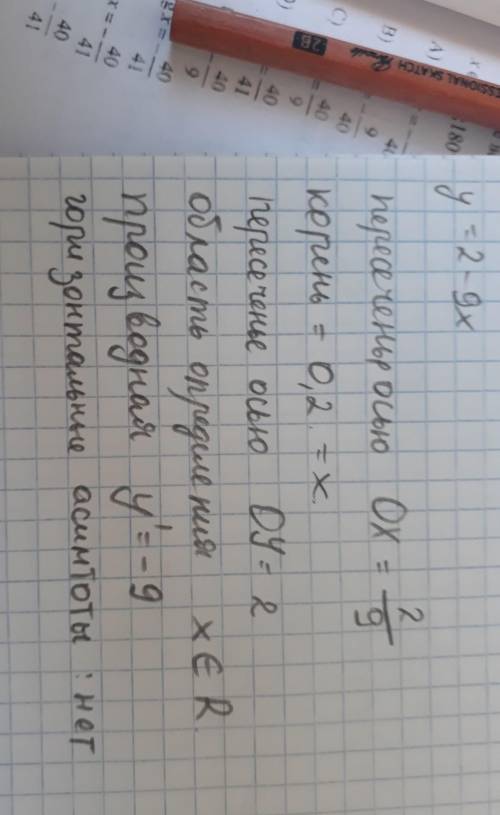 y = 2 - 9x
пересеченьр осью OX = 2/9
корень = 0,2. = x.
пересеченье осью OY = 2
область опредмления x ∈ R.
производная y' = -9
горизонтальные асимтоты : нет
ESSIONAL SKATCH
2B
180°
A)
B)
C)
40
9
40
41
40
9
x = - 40
41
- 40
41